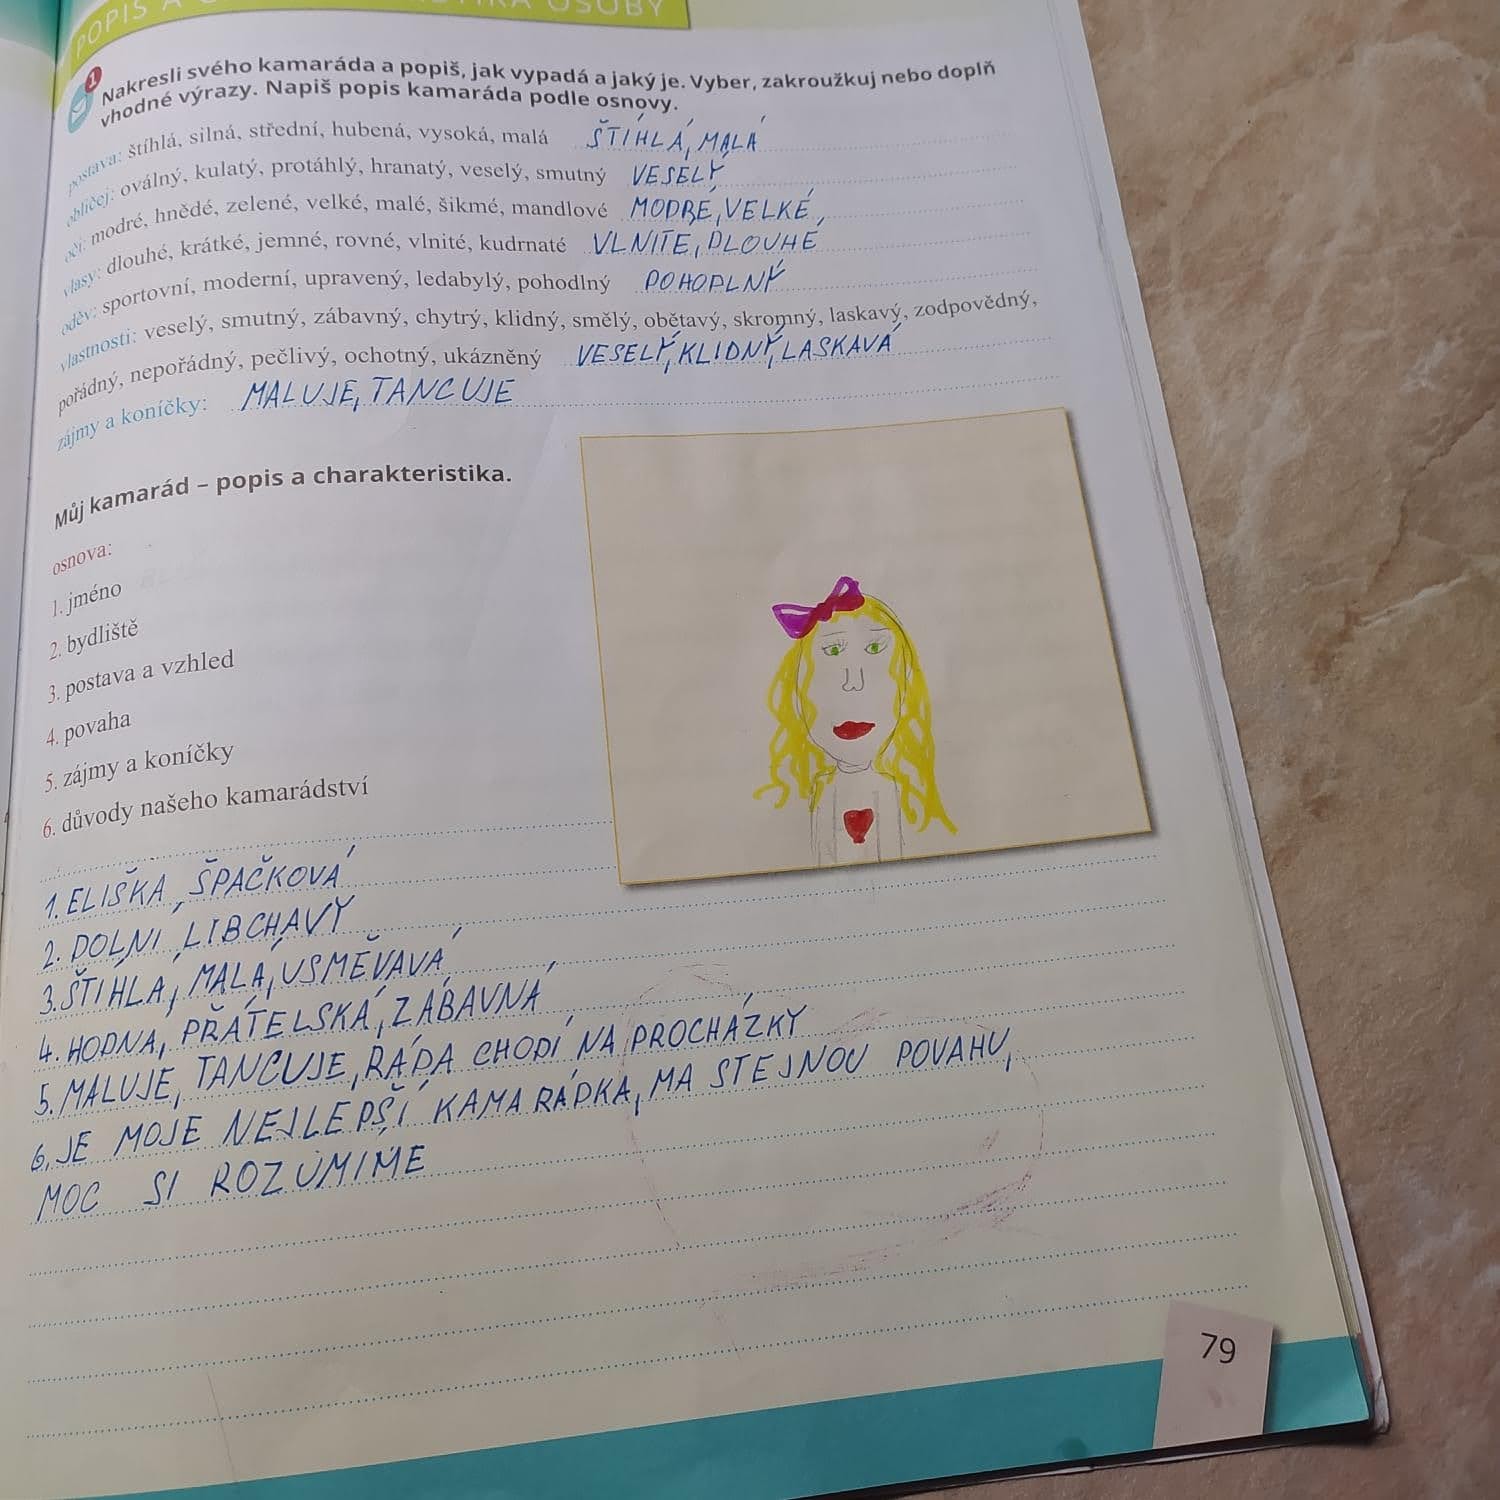 POPIS A OSOBY
1 Nakresli svého kamaráda a popiš, jak vypadá a jaký je. Vyber, zakroužkuj nebo doplň
vhodné výrazy. Napiš popis kamaráda podle osnovy.
postava: štíhlá, silná, střední, hubená, vysoká, malá ŠTÍHLÁ, MALÁ
obličej: oválný, kulatý, protáhlý, hranatý, veselý, smutný VESELÝ
oči: modré, hnědé, zelené, velké, malé, šikmé, mandlové MODRÉ, VELKÉ,
vlasy: dlouhé, krátké, jemné, rovné, vlnité, kudrnaté VLNITÉ, DLOUHÉ
oděv: sportovní, moderní, upravený, ledabylý, pohodlný POHODLNÝ
vlastnosti: veselý, smutný, zábavný, chytrý, klidný, smělý, obětavý, skromný, laskavý, zodpovědný,
pořádný, nepořádný, pečlivý, ochotný, ukázněný VESELÝ, KLIDNÝ, LASKAVÁ
zájmy a koníčky: MALUJE, TANCUJE
Můj kamarád – popis a charakteristika.
osnova:
1. jméno
2. bydliště
3. postava a vzhled
4. povaha
5. zájmy a koníčky
6. důvody našeho kamarádství
1. ELIŠKA ŠPAČKOVÁ
2. DOLNÍ LIBCHAVY
3. ŠTÍHLÁ, MALÁ, USMĚVAVÁ
4. HODNÁ, PŘÁTELSKÁ, ZÁBAVNÁ
5. MALUJE, TANCUJE, RÁDA CHODÍ NA PROCHÁZKY
6. JE MOJE NEJLEPŠÍ KAMARÁDKA, MÁ STEJNOU POVAHU,
MOC SI ROZUMÍME
79